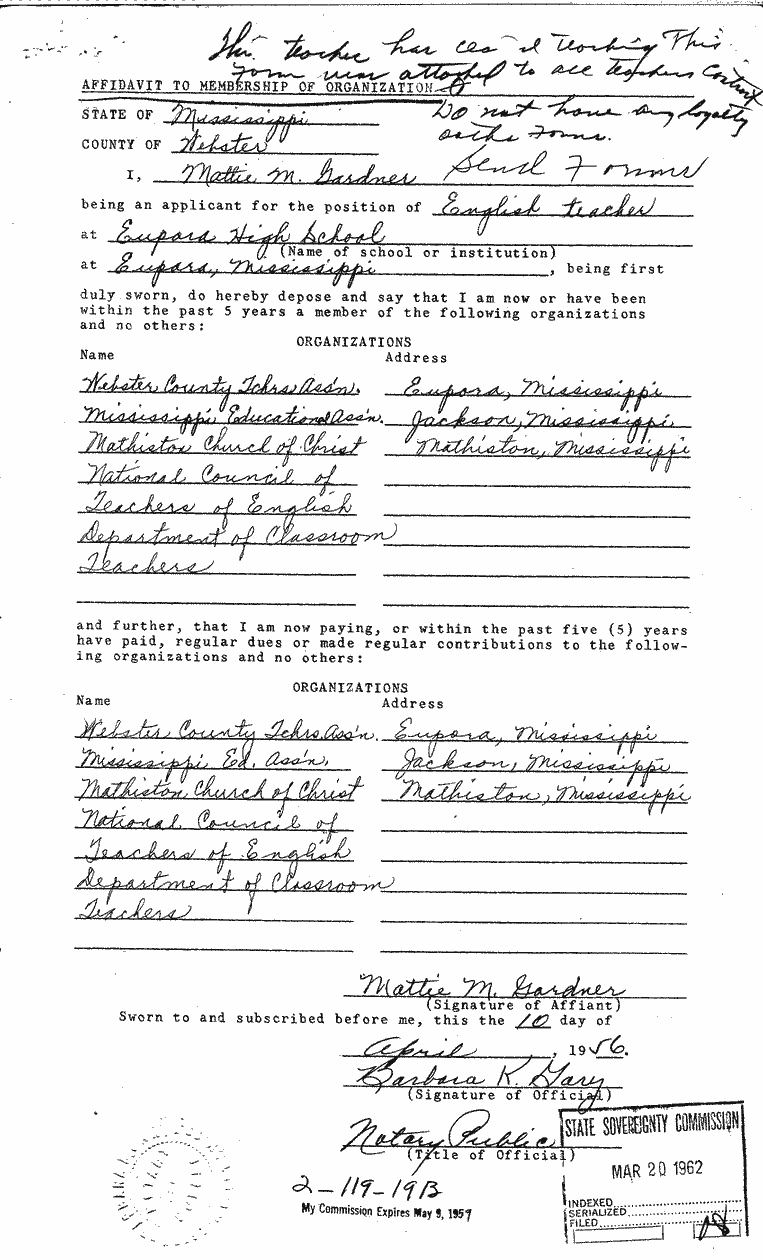 This teacher has ceased teaching This
Form was attached to all teachers Contract
AFFIDAVIT TO MEMBERSHIP OF ORGANIZATION
Do not have any loyalty
oaths Forms.
Send Forms
STATE OF Mississippi
COUNTY OF Webster
I, Mattie M. Gardner
being an applicant for the position of English teacher
at Eupora High School
(Name of school or institution)
at Eupora, Mississippi, being first
duly sworn, do hereby depose and say that I am now or have been
within the past 5 years a member of the following organizations
and no others:
ORGANIZATIONS
Name Address
Webster County Tchrs. Ass'n. Eupora, Mississippi
Mississippi Educational Ass'n. Jackson, Mississippi
Mathiston Church of Christ Mathiston, Mississippi
National Council of
Teachers of English
Department of Classroom
Teachers
and further, that I am now paying, or within the past five (5) years
have paid, regular dues or made regular contributions to the follow-
ing organizations and no others:
ORGANIZATIONS
Name Address
Webster County Tchrs. Ass'n. Eupora, Mississippi
Mississippi Ed. Ass'n. Jackson, Mississippi
Mathiston Church of Christ Mathiston, Mississippi
National Council of
Teachers of English
Department of Classroom
Teachers
Mattie M. Gardner
(Signature of Affiant)
Sworn to and subscribed before me, this the 10 day of
April, 1956.
Barbara K. Gary
(Signature of Official)
Notary Public
(Title of Official)
2-119-19B
My Commission Expires May 9, 1957
STATE SOVEREIGNTY COMMISSION
MAR 20 1962
INDEXED
SERIALIZED
FILED